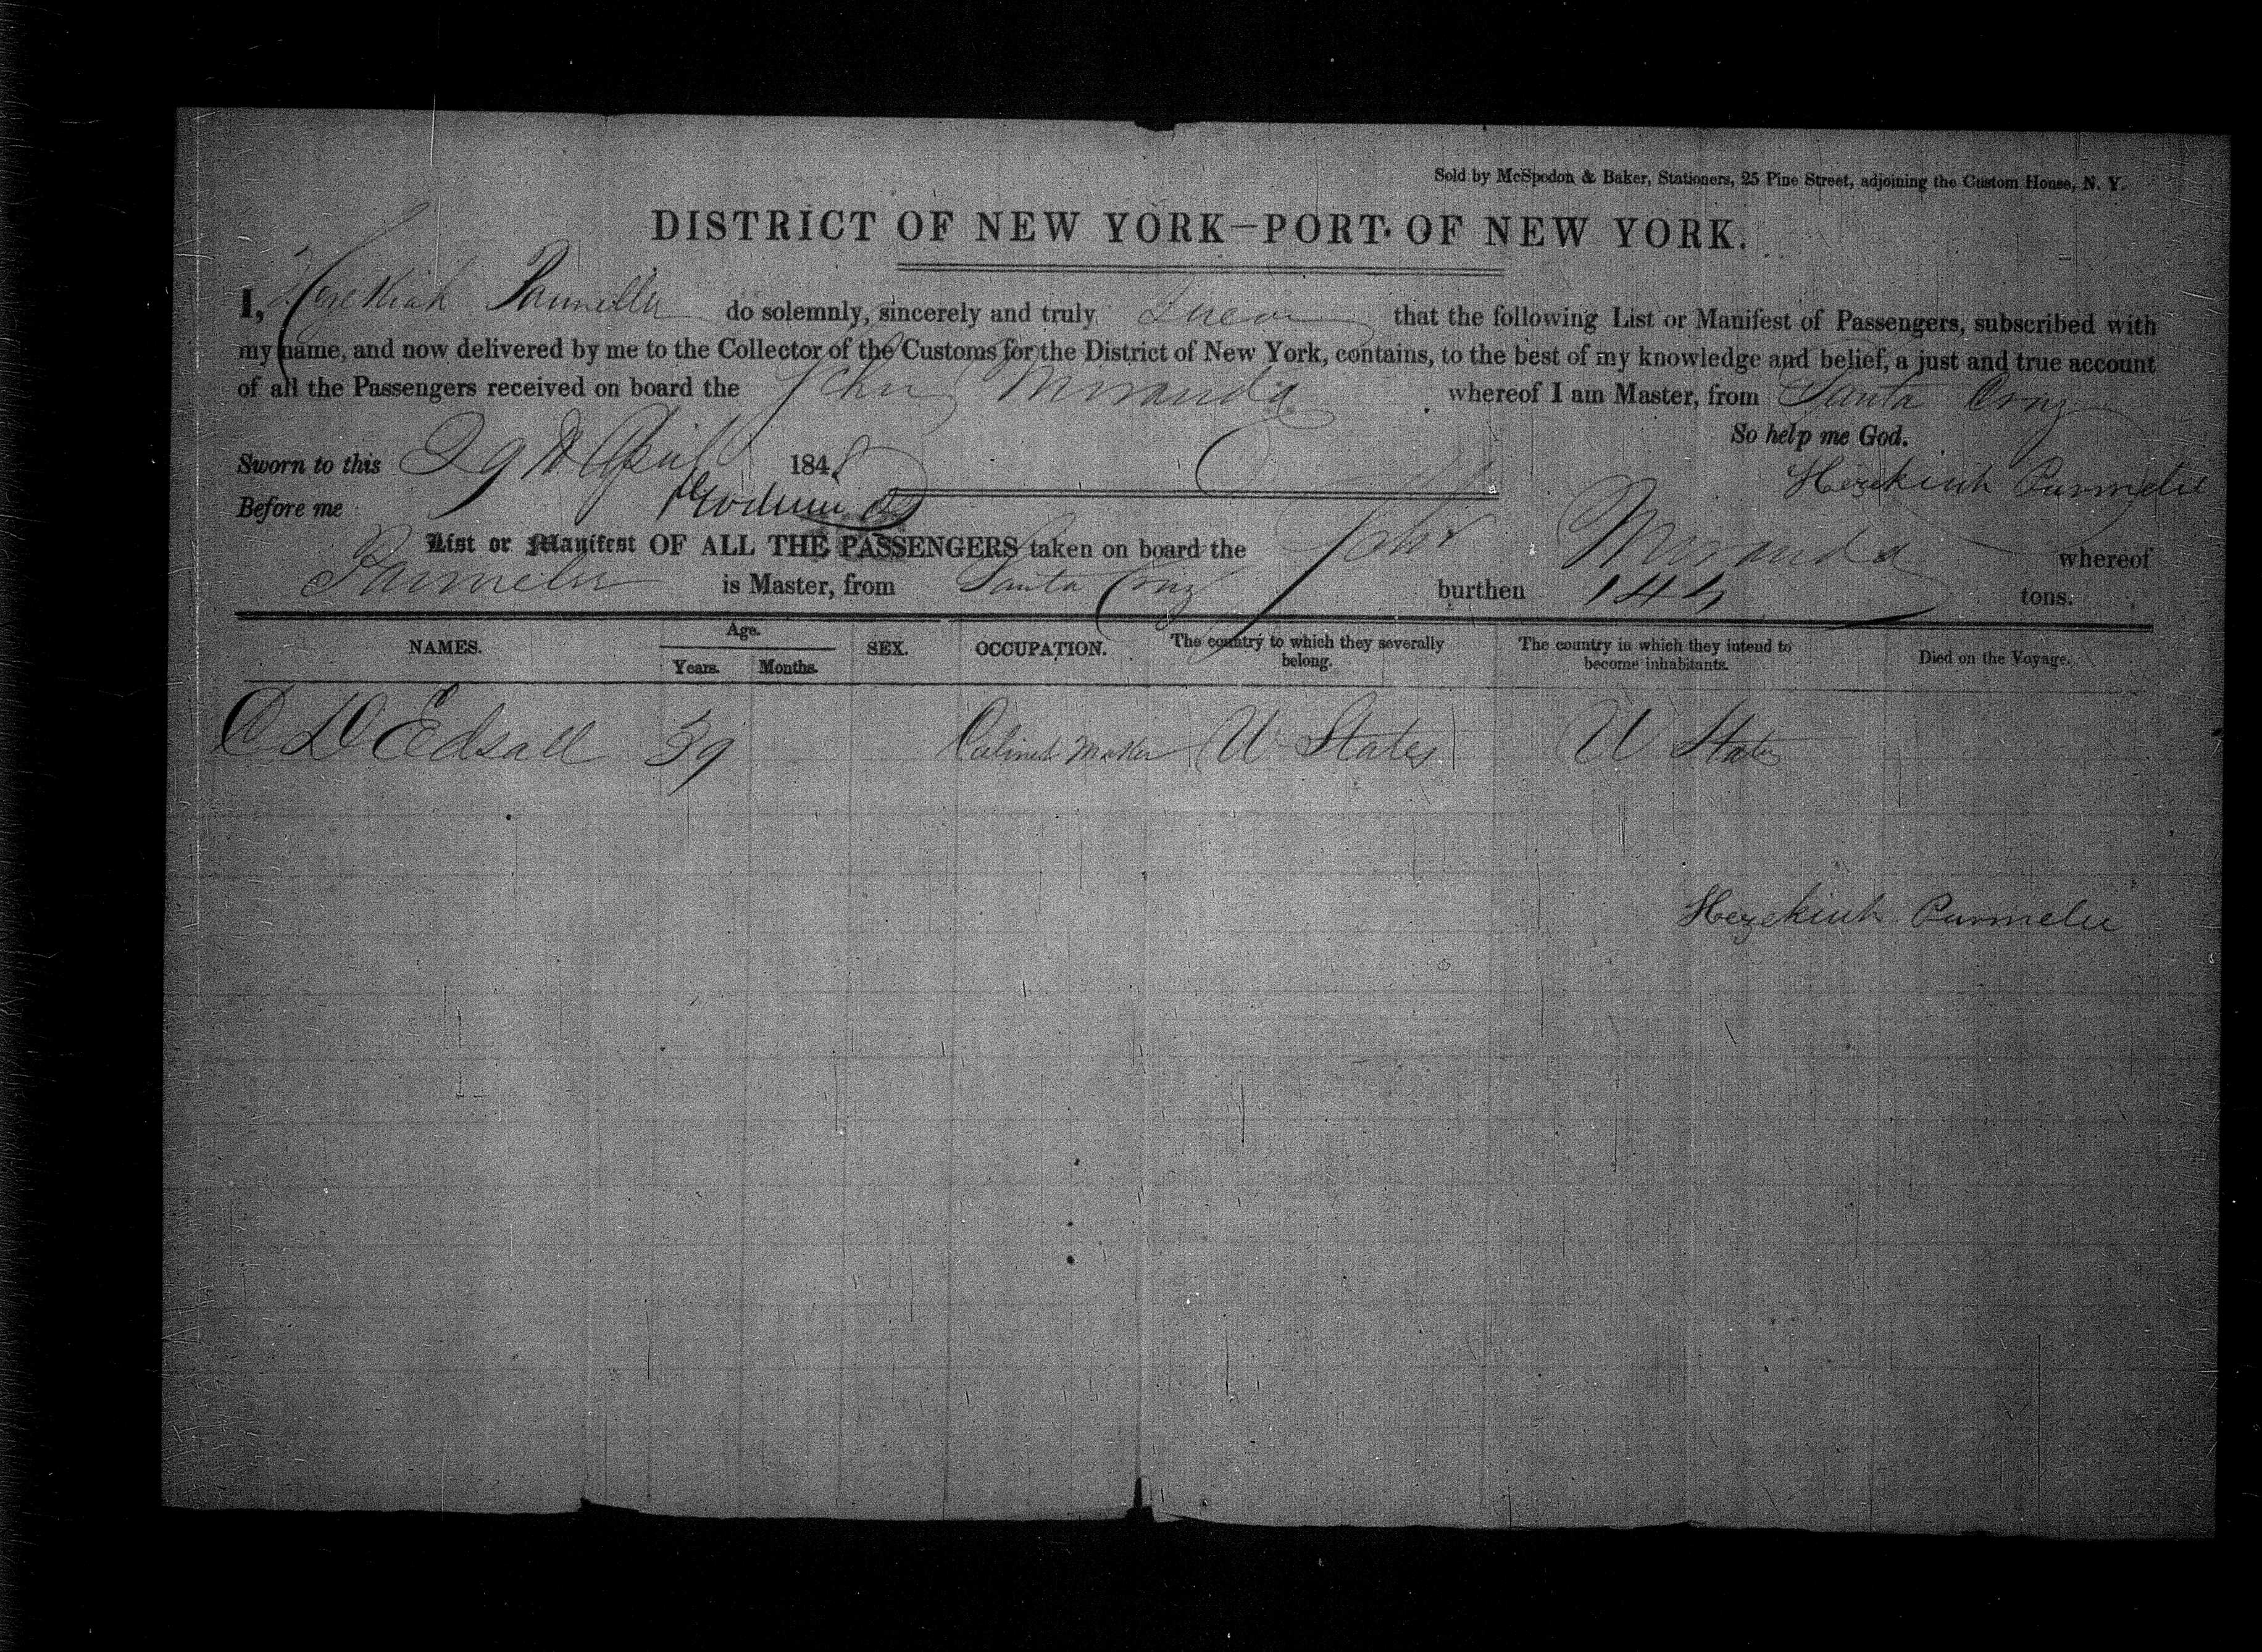 Sold by McSpedon & Baker, Stationers, 25 Pine Street, adjoining the Custom House, N. Y.
DISTRICT OF NEW YORK—PORT OF NEW YORK.
I, Hezekiah Parmelee do solemnly, sincerely and truly Swear that the following List or Manifest of Passengers, subscribed with
my name, and now delivered by me to the Collector of the Customs for the District of New York, contains, to the best of my knowledge and belief, a just and true account
of all the Passengers received on board the John Miranda whereof I am Master, from Santa Cruz
So help me God.
Sworn to this 29th April 1848
Hezekiah Parmelee
Before me
List or Manifest OF ALL THE PASSENGERS taken on board the John Miranda whereof
Parmelee is Master, from Santa Cruz burthen 144 tons.
NAMES. Age. Years. Months. SEX. OCCUPATION. The country to which they severally belong. The country in which they intend to become inhabitants. Died on the Voyage.
C D Edsall 39 Cabinet Maker U States U States
Hezekiah Parmelee